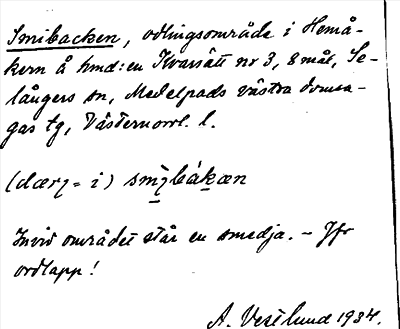 Smibacken, odlingsområde i Hemå-
kern å hmd:en Kvarsätt nr 3, 8 mål, Se-
långers sn, Medelpads västra domsa-
gas tg, Västernorrl. l.
(dær = i) smi̱bák̠æn
Invid området står en smedja. – Jfr
ordlapp!
A. Vestlund 1934.